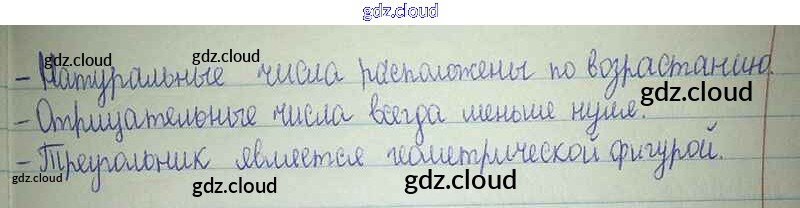 gdz.cloud
gdz.cloud gdz.cloud
- Натуральные числа расположены по возрастанию.
gdz.cloud gdz.cloud
- Отрицательные числа всегда меньше нуля.
- Треугольник является геометрической фигурой.
gdz.cloud gdz.cloud gdz.cloud